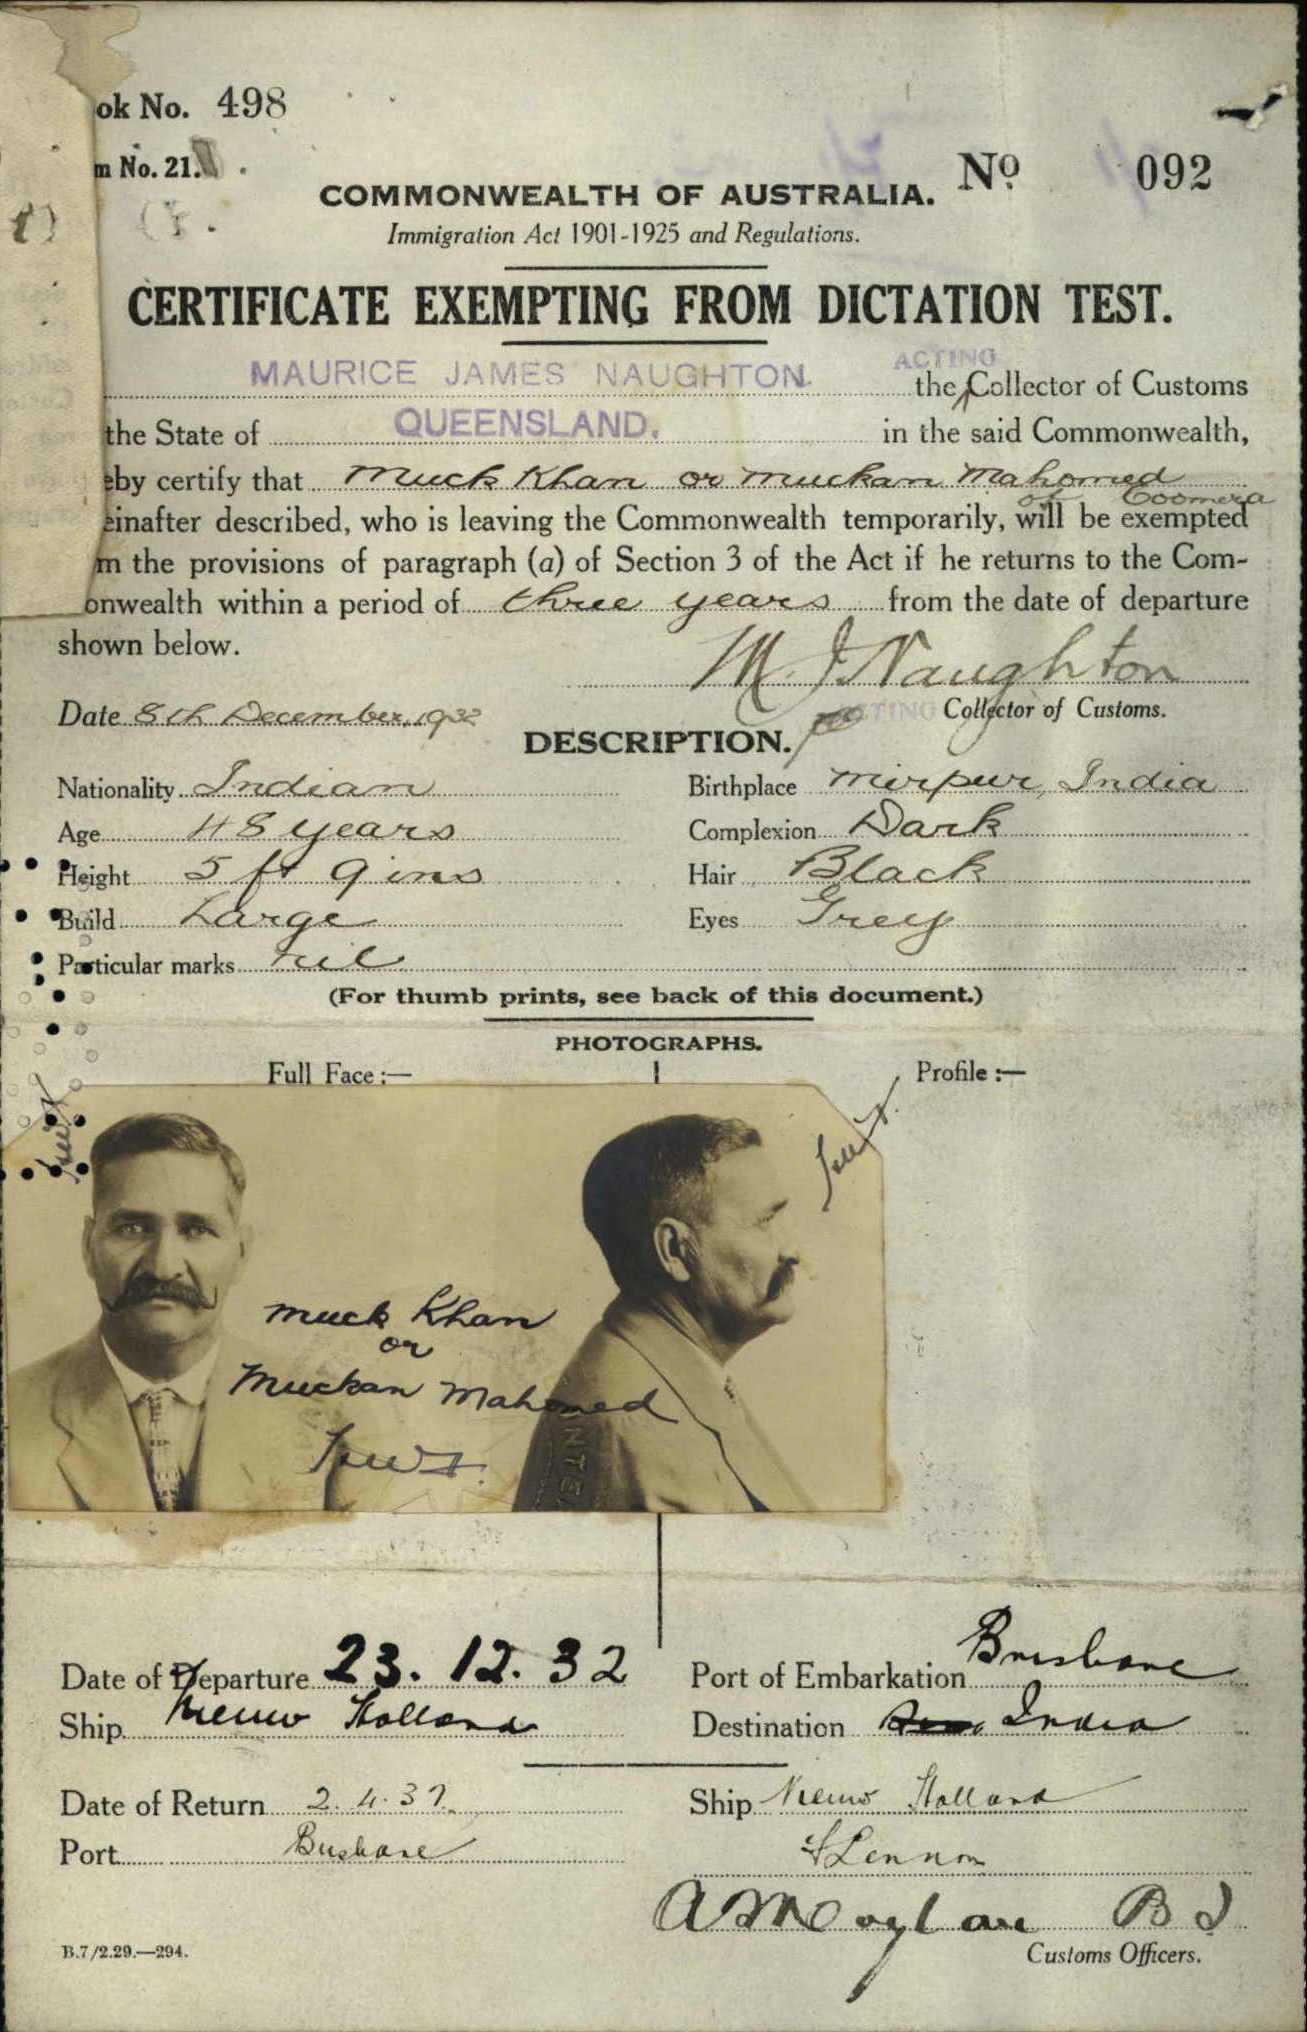 ok No. 498
m No. 21.
No. 092
COMMONWEALTH OF AUSTRALIA.
Immigration Act 1901-1925 and Regulations.
CERTIFICATE EXEMPTING FROM DICTATION TEST.
MAURICE JAMES NAUGHTON the ACTING Collector of Customs
the State of QUEENSLAND. in the said Commonwealth,
eby certify that Muck Khan or Muckan Mahomed
of Coomera
einafter described, who is leaving the Commonwealth temporarily, will be exempted
m the provisions of paragraph (a) of Section 3 of the Act if he returns to the Com-
onwealth within a period of three years from the date of departure
shown below.
M. J Naughton
Date 8th December, 1932 ACTING Collector of Customs.
DESCRIPTION.
Nationality Indian Birthplace Mirpur, India
Age 48 years Complexion Dark
Height 5 ft 9 ins Hair Black
Build Large Eyes Grey
Particular marks nil
(For thumb prints, see back of this document.)
PHOTOGRAPHS.
Full Face :— Profile :—
Muck Khan
or
Muckan Mahomed
Date of Departure 23. 12. 32 Port of Embarkation Brisbane
Ship Nieuw Holland Destination India
Date of Return 2. 4. 37. Ship Nieuw Holland
Port Brisbane Lennon
B.7/2.29.—294. Customs Officers.